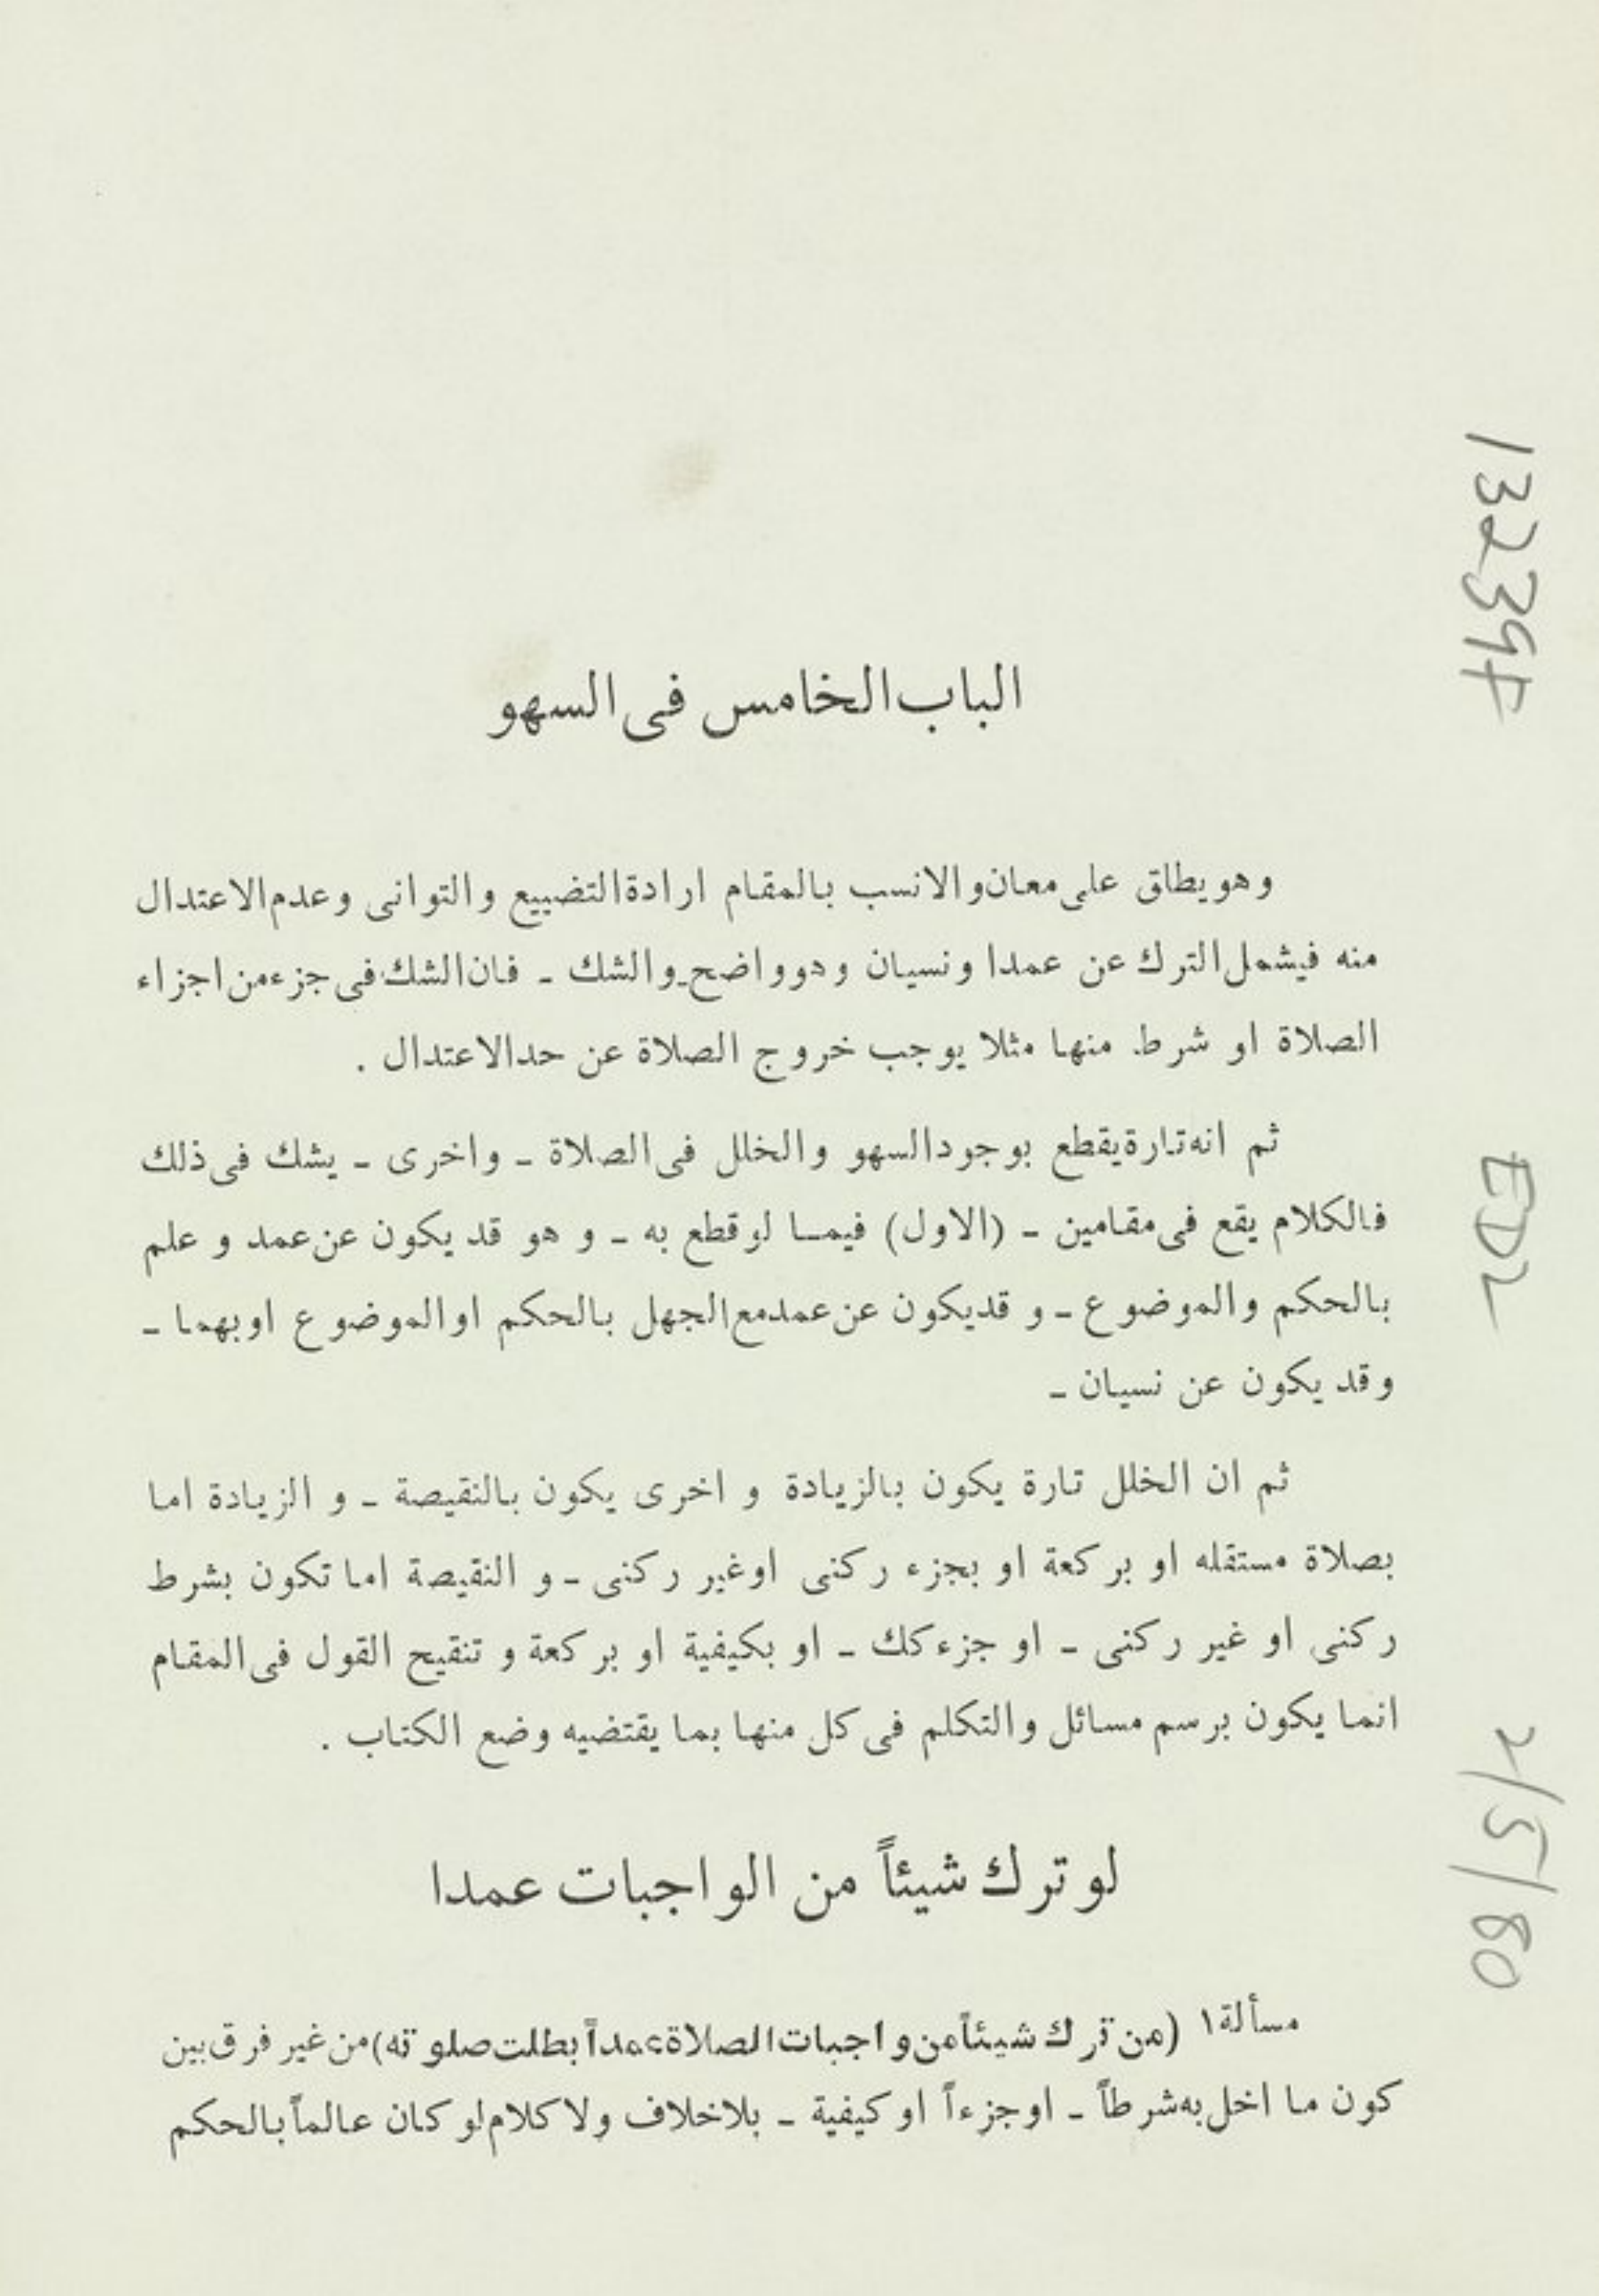 الباب الخامس فى السهو
وهو يطلق على معان والانسب بالمقام ارادة التضييع والتوانى وعدم الاعتدال
منه فيشمل الترك عن عمدا ونسيان وهو واضح ـ والشك ـ فان الشك فى جزء من اجزاء
الصلاة او شرط منها مثلا يوجب خروج الصلاة عن حد الاعتدال .
ثم انه تارة يقطع بوجود السهو والخلل فى الصلاة ـ واخرى ـ يشك فى ذلك
فالكلام يقع فى مقامين ـ (الاول) فيما لو قطع به ـ و هو قد يكون عن عمد و علم
بالحكم والموضوع ـ و قد يكون عن عمد مع الجهل بالحكم او الموضوع او بهما ـ
وقد يكون عن نسيان ـ
ثم ان الخلل تارة يكون بالزيادة و اخرى يكون بالنقيصة ـ و الزيادة اما
بصلاة مستقله او بركعة او بجزء ركنى او غير ركنى ـ و النقيصة اما تكون بشرط
ركنى او غير ركنى ـ او جزء كك ـ او بكيفية او بركعة و تنقيح القول فى المقام
انما يكون برسم مسائل والتكلم فى كل منها بما يقتضيه وضع الكتاب .
لو ترك شيئاً من الواجبات عمدا
مسألة ١ (من ترك شيئاً من واجبات الصلاة عمداً بطلت صلوته) من غير فرق بين
كون ما اخل به شرطاً ـ او جزءاً او كيفية ـ بلاخلاف ولا كلام لو كان عالماً بالحكم
13239f
EDL
2/5/80